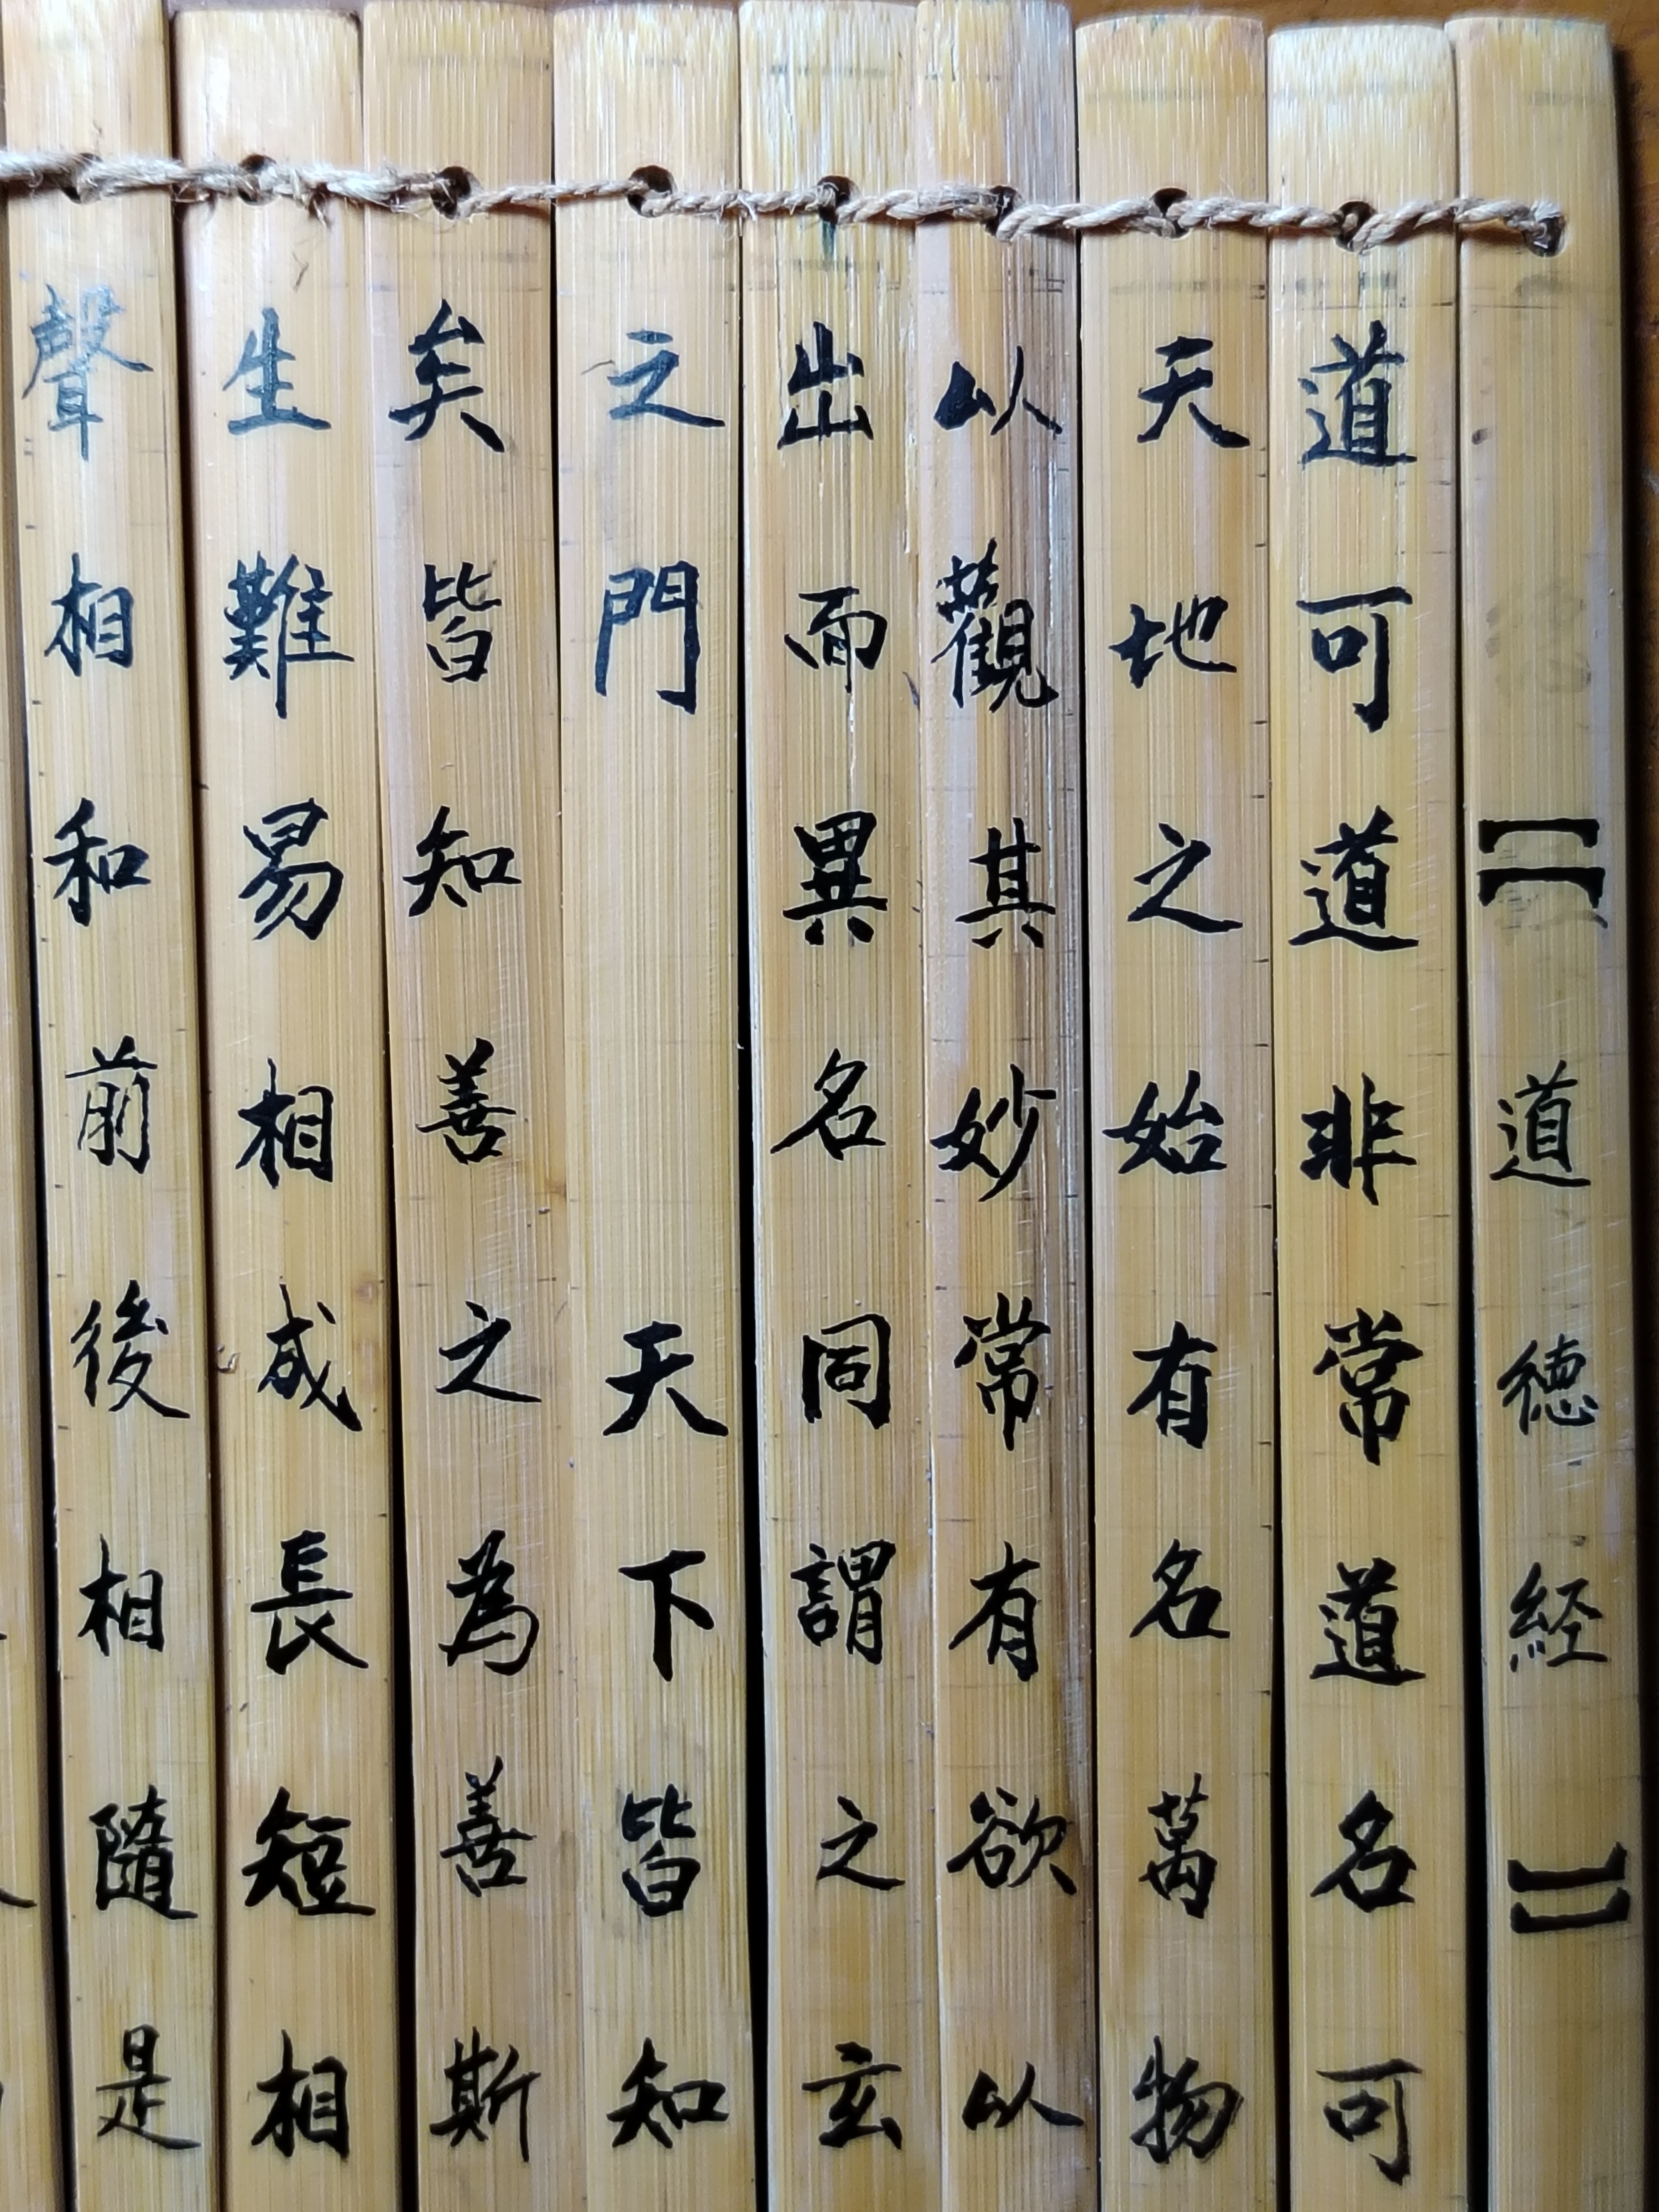 【道德経】
道可道非常道名可
天地之始有名萬物
以觀其妙常有欲以
出而異名同謂之玄
之門 天下皆知
矣皆知善之為善斯
生難易相成長短相
聲相和前後相隨是